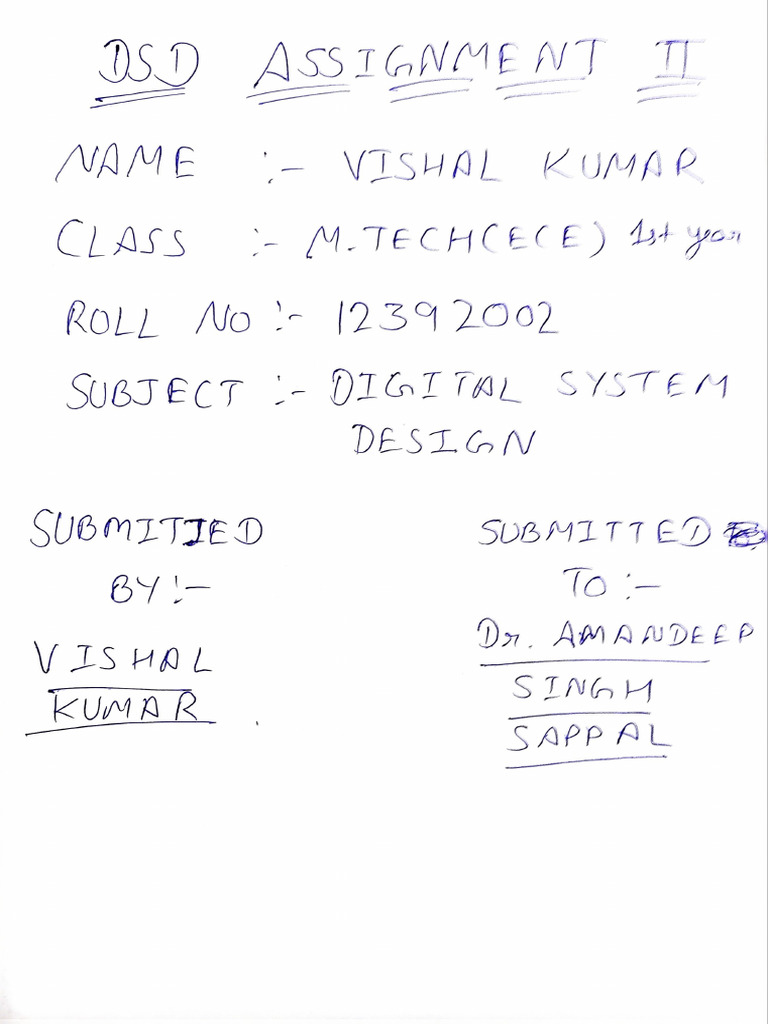 DSD ASSIGNMENT II
NAME :- VISHAL KUMAR
CLASS :- M.TECH(ECE) 1st year
ROLL NO :- 12392002
SUBJECT :- DIGITAL SYSTEM
DESIGN
SUBMITTED
BY :-
VISHAL
KUMAR
SUBMITTED
TO :-
Dr. AMANDEEP
SINGH
SAPPAL